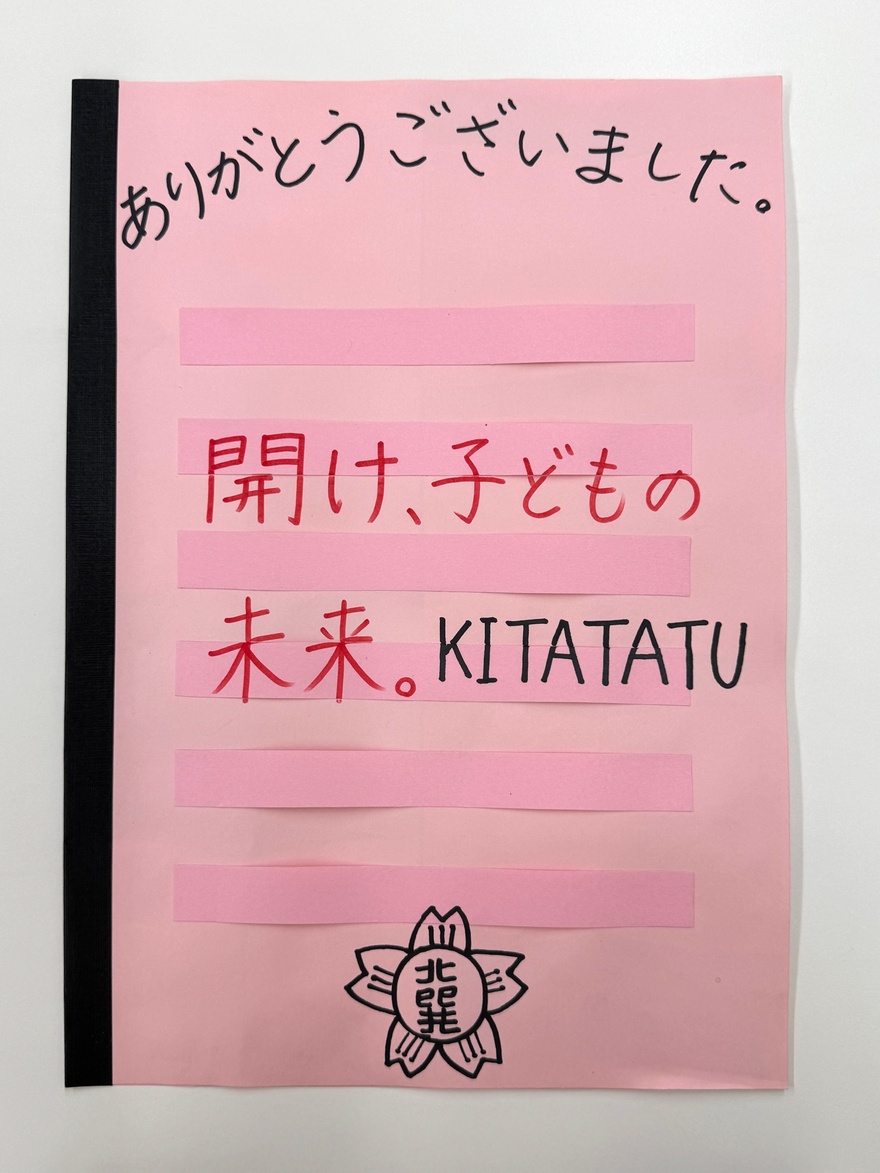 ありがとうございました。
開け、子どもの
未来。KITATATU
北
巽